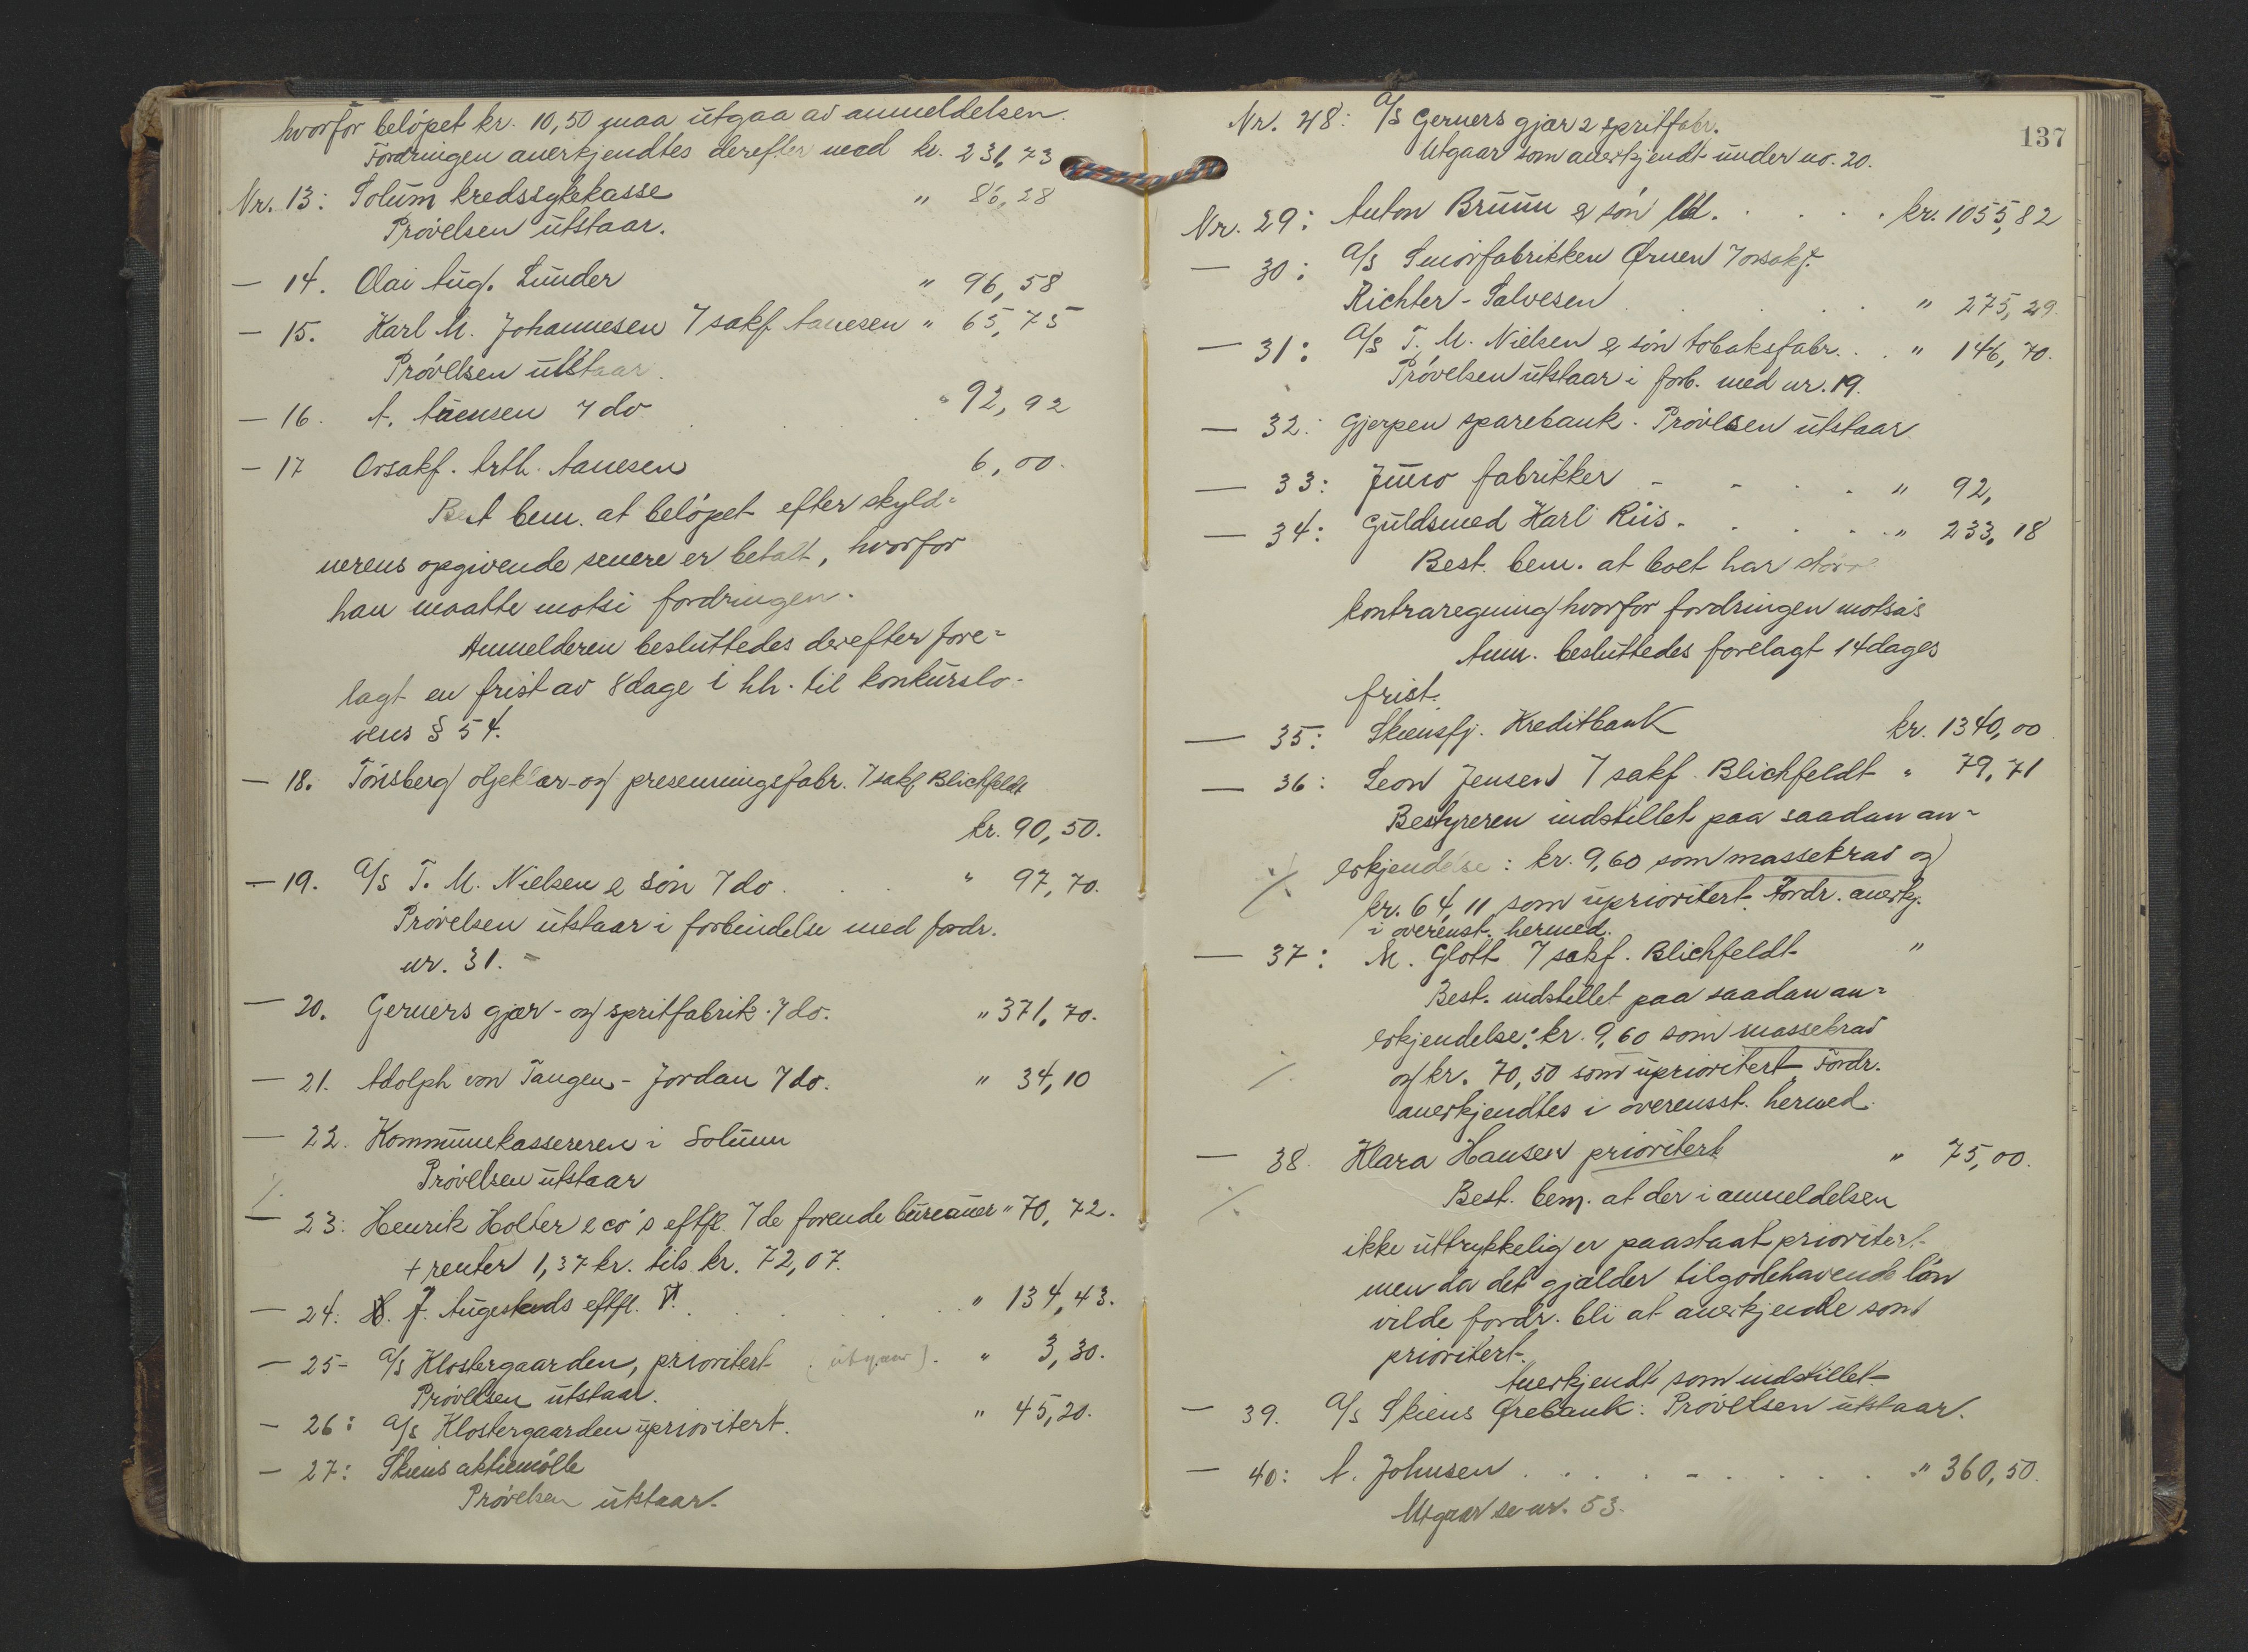 hvorfor beløpet kr. 10,50 maa utgaa av anmeldelsen.
Fordringen anerkjendtes derefter med kr. 231,73
Nr. 13: Solum kredssykekasse " 86,28
Prøvelsen utstaar.
— 14. Olai Aug. Lunder " 96,58
— 15. Karl M. Johannesen 7 sakf. Aanesen " 65,75
Prøvelsen utstaar.
— 16. A. 7 do " 92,92
— 17 Ovsakf. Arth. Aanesen 6,00.
Best bem. at beløpet efter skyld-
nerens opgivende senere er betalt, hvorfor
han maatte motsi fordringen.
Anmelderen besluttedes derefter fore-
lagt en frist av 8 dage i hh. til konkurslo-
vens § 54.
— 18. Tönsberg oljeklær- og presenningsfabr. 7 sakf. Blichfeldt
kr. 90,50.
— 19. A/s T. M. Nielsen & søn 7 do. " 97,70.
Prøvelsen utstaar i forbindelse med fordr.
nr. 31. -
— 20. Gerners gjær- og spritfabrik 7 do. " 371,70.
— 21. Adolph von Tangen - Jordan 7 do. " 34,10
— 22. Kommunekassereren i Solum
Prøvelsen utstaar
— 23: Henrik Holter & co's eftfl. 7 de forende bureauer " 70,72.
+ renter 1,37 kr. tils. kr. 72,07.
— 24: J. Augestads eftfl. " 134,43.
— 25- A/s Klostergaarden, prioritert (utgaar). " 3,30.
Prøvelsen utstaar.
— 26: A/s Klostergaarden uprioritert. " 45,20.
— 27: Skiens aktiemølle
Prøvelsen utstaar.
137
Nr. 28: A/s Gerners gjær & spritfabr.
Utgaar som anerkjendt under no. 20.
Nr. 29: Anton Bruun & søn Ltd. . . . . kr. 1055,82
— 30: A/s Smørfabrikken Ørnen 7 ovsakf.
Richter-Salvesen . . . " 275,29.
— 31: A/s T. M. Nielsen & søn tobaksfabr. . . " 146,70.
Prøvelsen utstaar i forb. med nr. 19.
— 32: Gjerpen sparebank. Prøvelsen utstaar.
— 33: Juno fabrikker - - . . " 92,
— 34: Guldsmed Karl Riis. . . . " 233,18
Best. bem. at boet har større
kontraregning hvorfor fordringen motsa's
Anm. besluttedes forelagt 14 dages
frist.
— 35: Skiensfj. Kreditbank kr. 1340,00
— 36: Leon Jensen 7 sakf. Blichfeldt " 79,71
Bestyreren indstillet paa saadan an-
erkjendelse: kr. 9,60 som massekrav og
kr. 64,11 som uprioritert. Fordr. anerkj.
i overenst. hermed.
— 37: M. Glott 7 sakf. Blichfeldt "
Best. indstillet paa saadan an-
erkjendelse: kr. 9,60 som massekrav
og kr. 70,50 som uprioritert Fordr.
anerkjendtes i overensst. hermed.
— 38. Klara Hansen prioritert " 75,00.
Best. bem. at der i anmeldelsen
ikke uttrykkelig er paastaat prioritert
men da det gjælder tilgodehavende løn
vilde fordr. bli at anerkjende som
prioritert.
Anerkjendt som indstillet
— 39. A/s Skiens Ørebank: Prøvelsen utstaar.
— 40: A. Johnsen . . . . - . . . . " 360,50.
Utgaar se nr. 53.